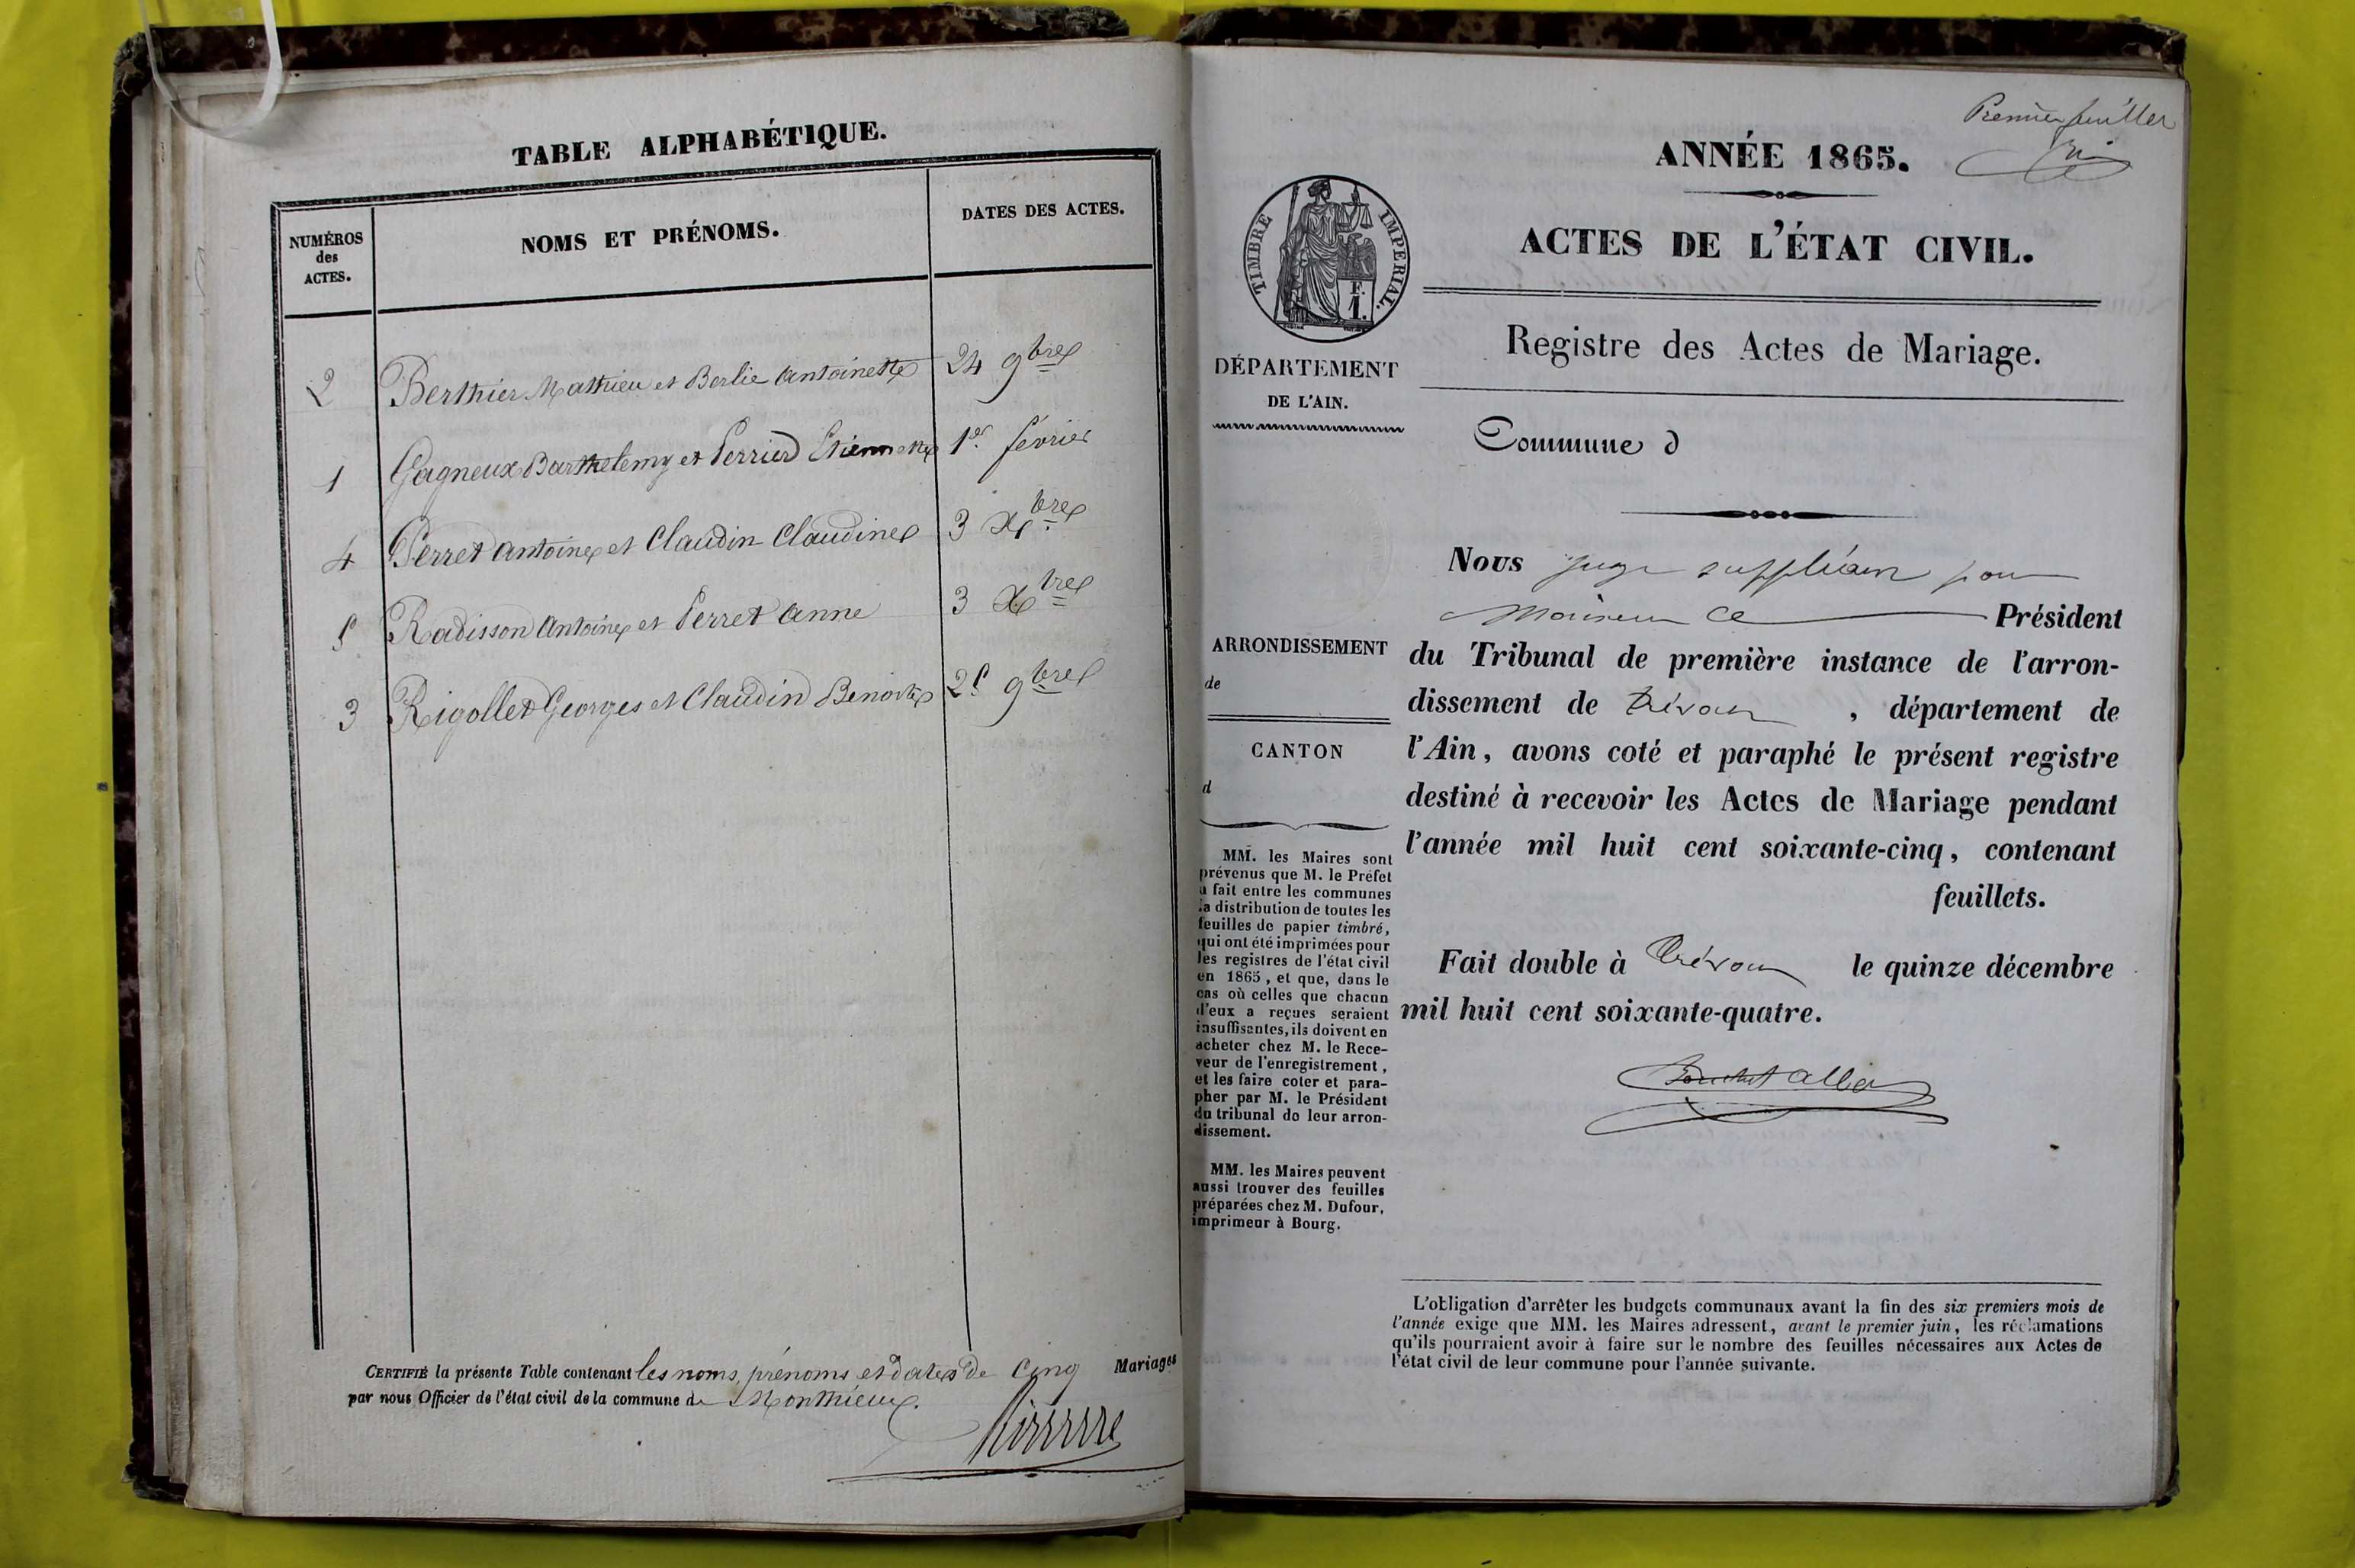 TABLE ALPHABÉTIQUE.
NUMÉROS
des
ACTES.
NOMS ET PRÉNOMS.
DATES DES ACTES.
2 Berthier Mathieu et Berlie Antoinette 24 9bre
1 Gagneux Barthelemy et Perrier Etiennette 1er février
4 Perret Antoine et Claudin Claudine 3 Xbre
5 Radisson Antoine et Perret Anne 3 Xbre
3 Rigollet Georges et Claudin Benoite 25 9bre
CERTIFIÉ la présente Table contenant les noms, prénoms et dates de Cinq Mariages
par nous Officier de l'état civil de la commune de Monthieux.
Premier feuillet
ANNÉE 1865.
ACTES DE L'ÉTAT CIVIL.
Registre des Actes de Mariage.
TIMBRE IMPÉRIAL.
F.
1.
DÉPARTEMENT
DE L'AIN.
Commune d
ARRONDISSEMENT
de
CANTON
d
MM. les Maires sont
prévenus que M. le Préfet
a fait entre les communes
la distribution de toutes les
feuilles de papier timbré,
qui ont été imprimées pour
les registres de l'état civil
en 1865, et que, dans le
cas où celles que chacun
d'eux a reçues seraient
insuffisantes, ils doivent en
acheter chez M. le Rece-
veur de l'enregistrement,
et les faire coter et para-
pher par M. le Président
du tribunal de leur arron-
dissement.
MM. les Maires peuvent
aussi trouver des feuilles
préparées chez M. Dufour,
imprimeur à Bourg.
Nous juge suppléant pour
Monsieur le Président
du Tribunal de première instance de l'arron-
dissement de Trévoux , département de
l'Ain, avons coté et paraphé le présent registre
destiné à recevoir les Actes de Mariage pendant
l'année mil huit cent soixante-cinq, contenant
feuillets.
Fait double à Trévoux le quinze décembre
mil huit cent soixante-quatre.
L'obligation d'arrêter les budgets communaux avant la fin des six premiers mois de
l'année exige que MM. les Maires adressent, avant le premier juin, les réclamations
qu'ils pourraient avoir à faire sur le nombre des feuilles nécessaires aux Actes de
l'état civil de leur commune pour l'année suivante.